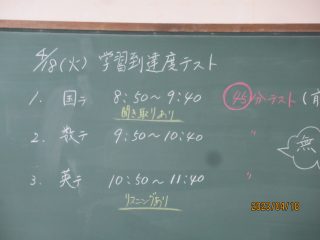 4/8(火) 学習到達度テスト
1. 国テ 8:50～9:40 45分テスト(前
聞き取りあり
2. 数テ 9:50～10:40 〃
無
3. 英テ 10:50～11:40 〃
リスニングあり
2025/04/16